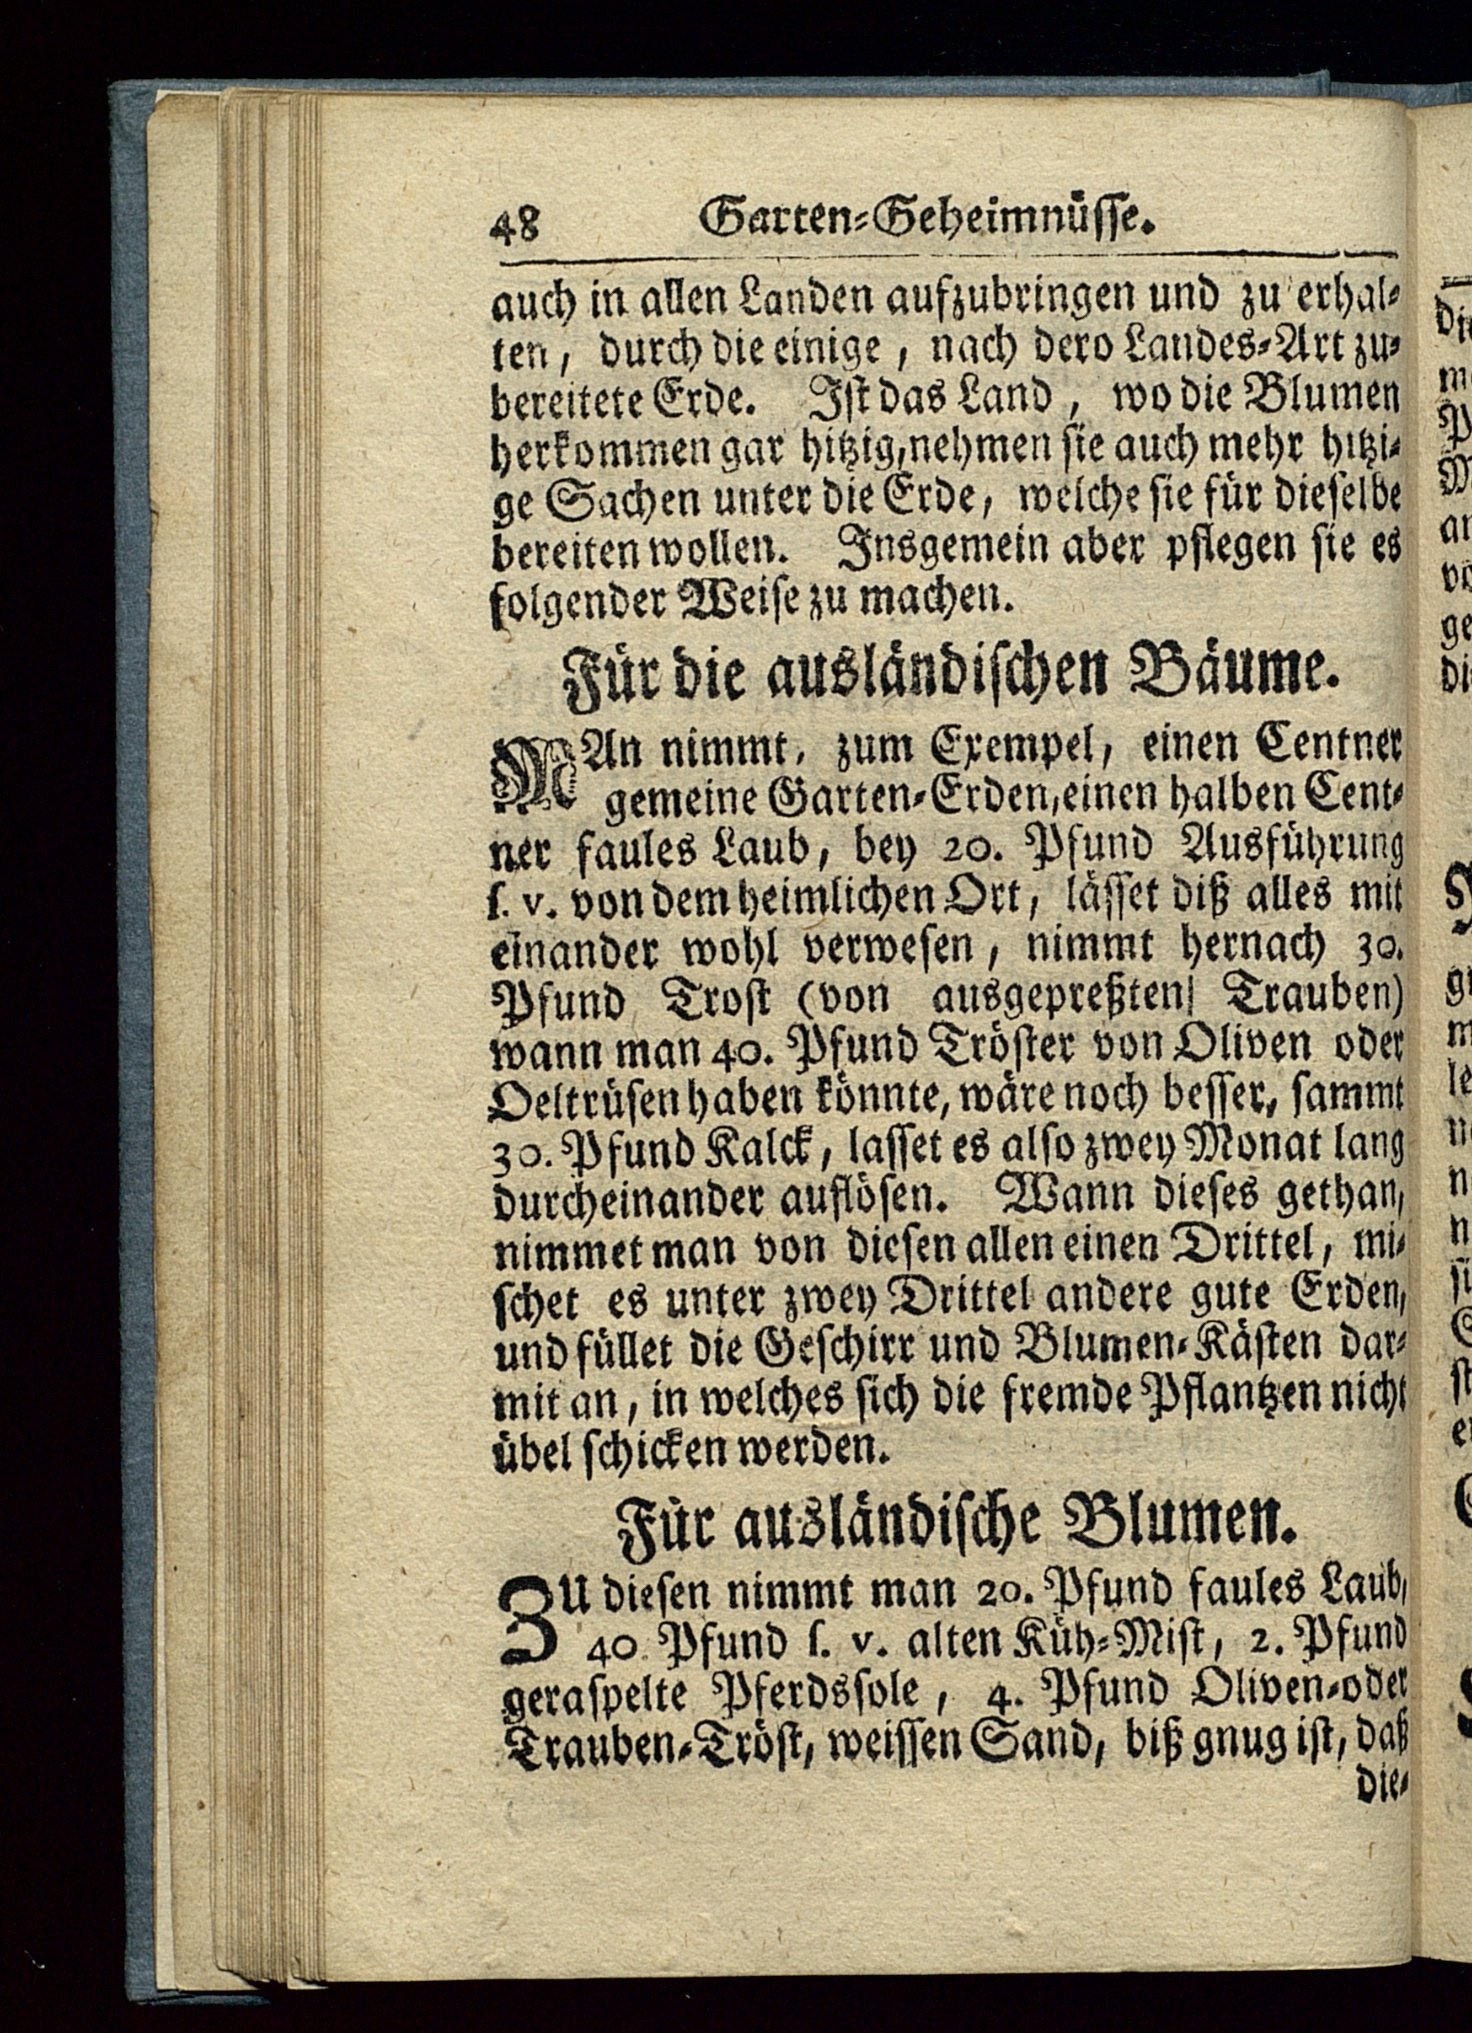 48 Garten-Geheimnüsse.
auch in allen Landen aufzubringen und zu erhal-
ten, durch die einige, nach dero Landes-Art zu-
bereitete Erde. Ist das Land, wo die Blumen
herkommen gar hitzig, nehmen sie auch mehr hitzi-
ge Sachen unter die Erde, welche sie für dieselbe
bereiten wollen. Insgemein aber pflegen sie es
folgender Weise zu machen.
Für die ausländischen Bäume.
MAn nimmt, zum Exempel, einen Centner
gemeine Garten-Erden, einen halben Cent-
ner faules Laub, bey 20. Pfund Ausführung
s. v. von dem heimlichen Ort, lässet diß alles mit
einander wohl verwesen, nimmt hernach 30.
Pfund Trost (von ausgepreßten Trauben)
wann man 40. Pfund Tröster von Oliven oder
Oeltrüsen haben könnte, wäre noch besser, sammt
30. Pfund Kalck, lasset es also zwey Monat lang
durcheinander auflösen. Wann dieses gethan,
nimmet man von diesen allen einen Drittel, mi-
schet es unter zwey Drittel andere gute Erden,
und füllet die Geschirr und Blumen-Kästen dar-
mit an, in welches sich die fremde Pflantzen nicht
übel schicken werden.
Für ausländische Blumen.
ZU diesen nimmt man 20. Pfund faules Laub,
40. Pfund s. v. alten Küh-Mist, 2. Pfund
geraspelte Pferdssole, 4. Pfund Oliven-oder
Trauben-Tröst, weissen Sand, biß gnug ist, daß
die-